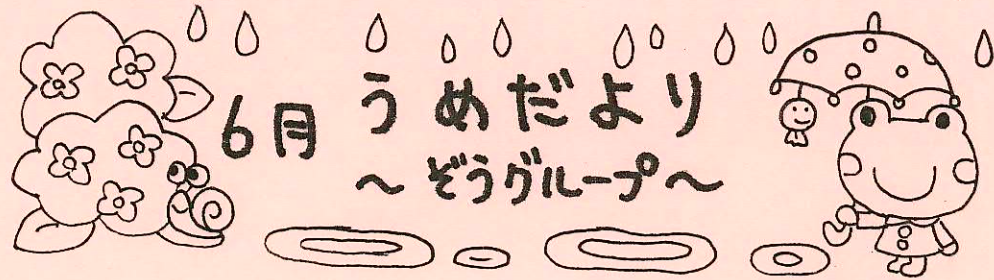 6月 うめだより
～ぞうグループ～